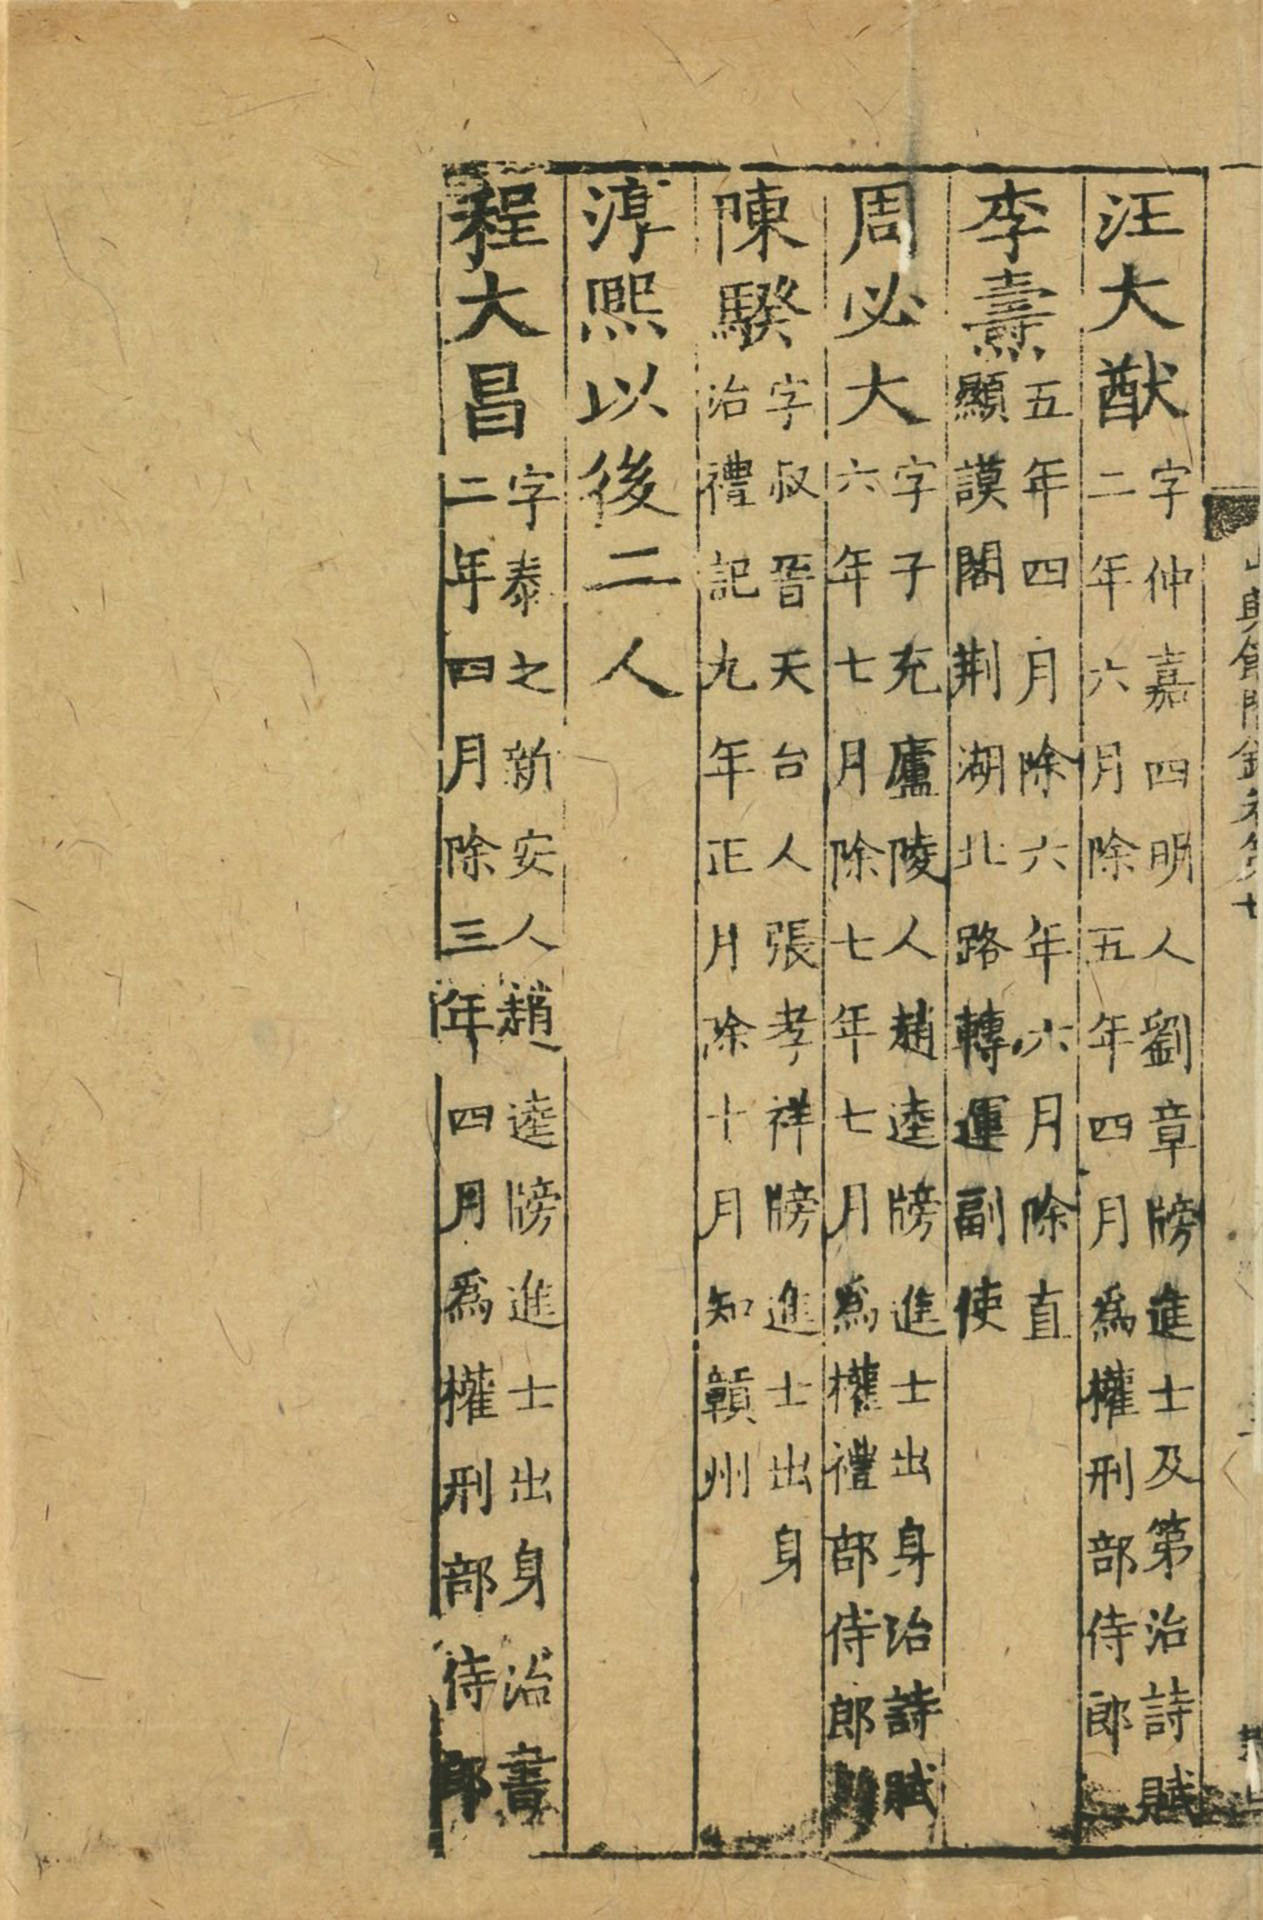 汪大猷
字仲嘉四明人劉章牓進士及第治詩賦
二年六月除五年四月爲權刑部侍郎
李燾
五年四月除六年六月除直
顯謨閣荆湖北路轉運副使
周必大
字子充廬陵人趙逵牓進士出身治詩賦
六年七月除七年七月爲權禮部侍郎
陳騤
字叔晉天台人張孝祥牓進士出身
治禮記九年正月除十月知贛州
淳熙以後二人
程大昌
字泰之新安人趙逵牓進士出身治書
二年四月除三年四月爲權刑部侍郎